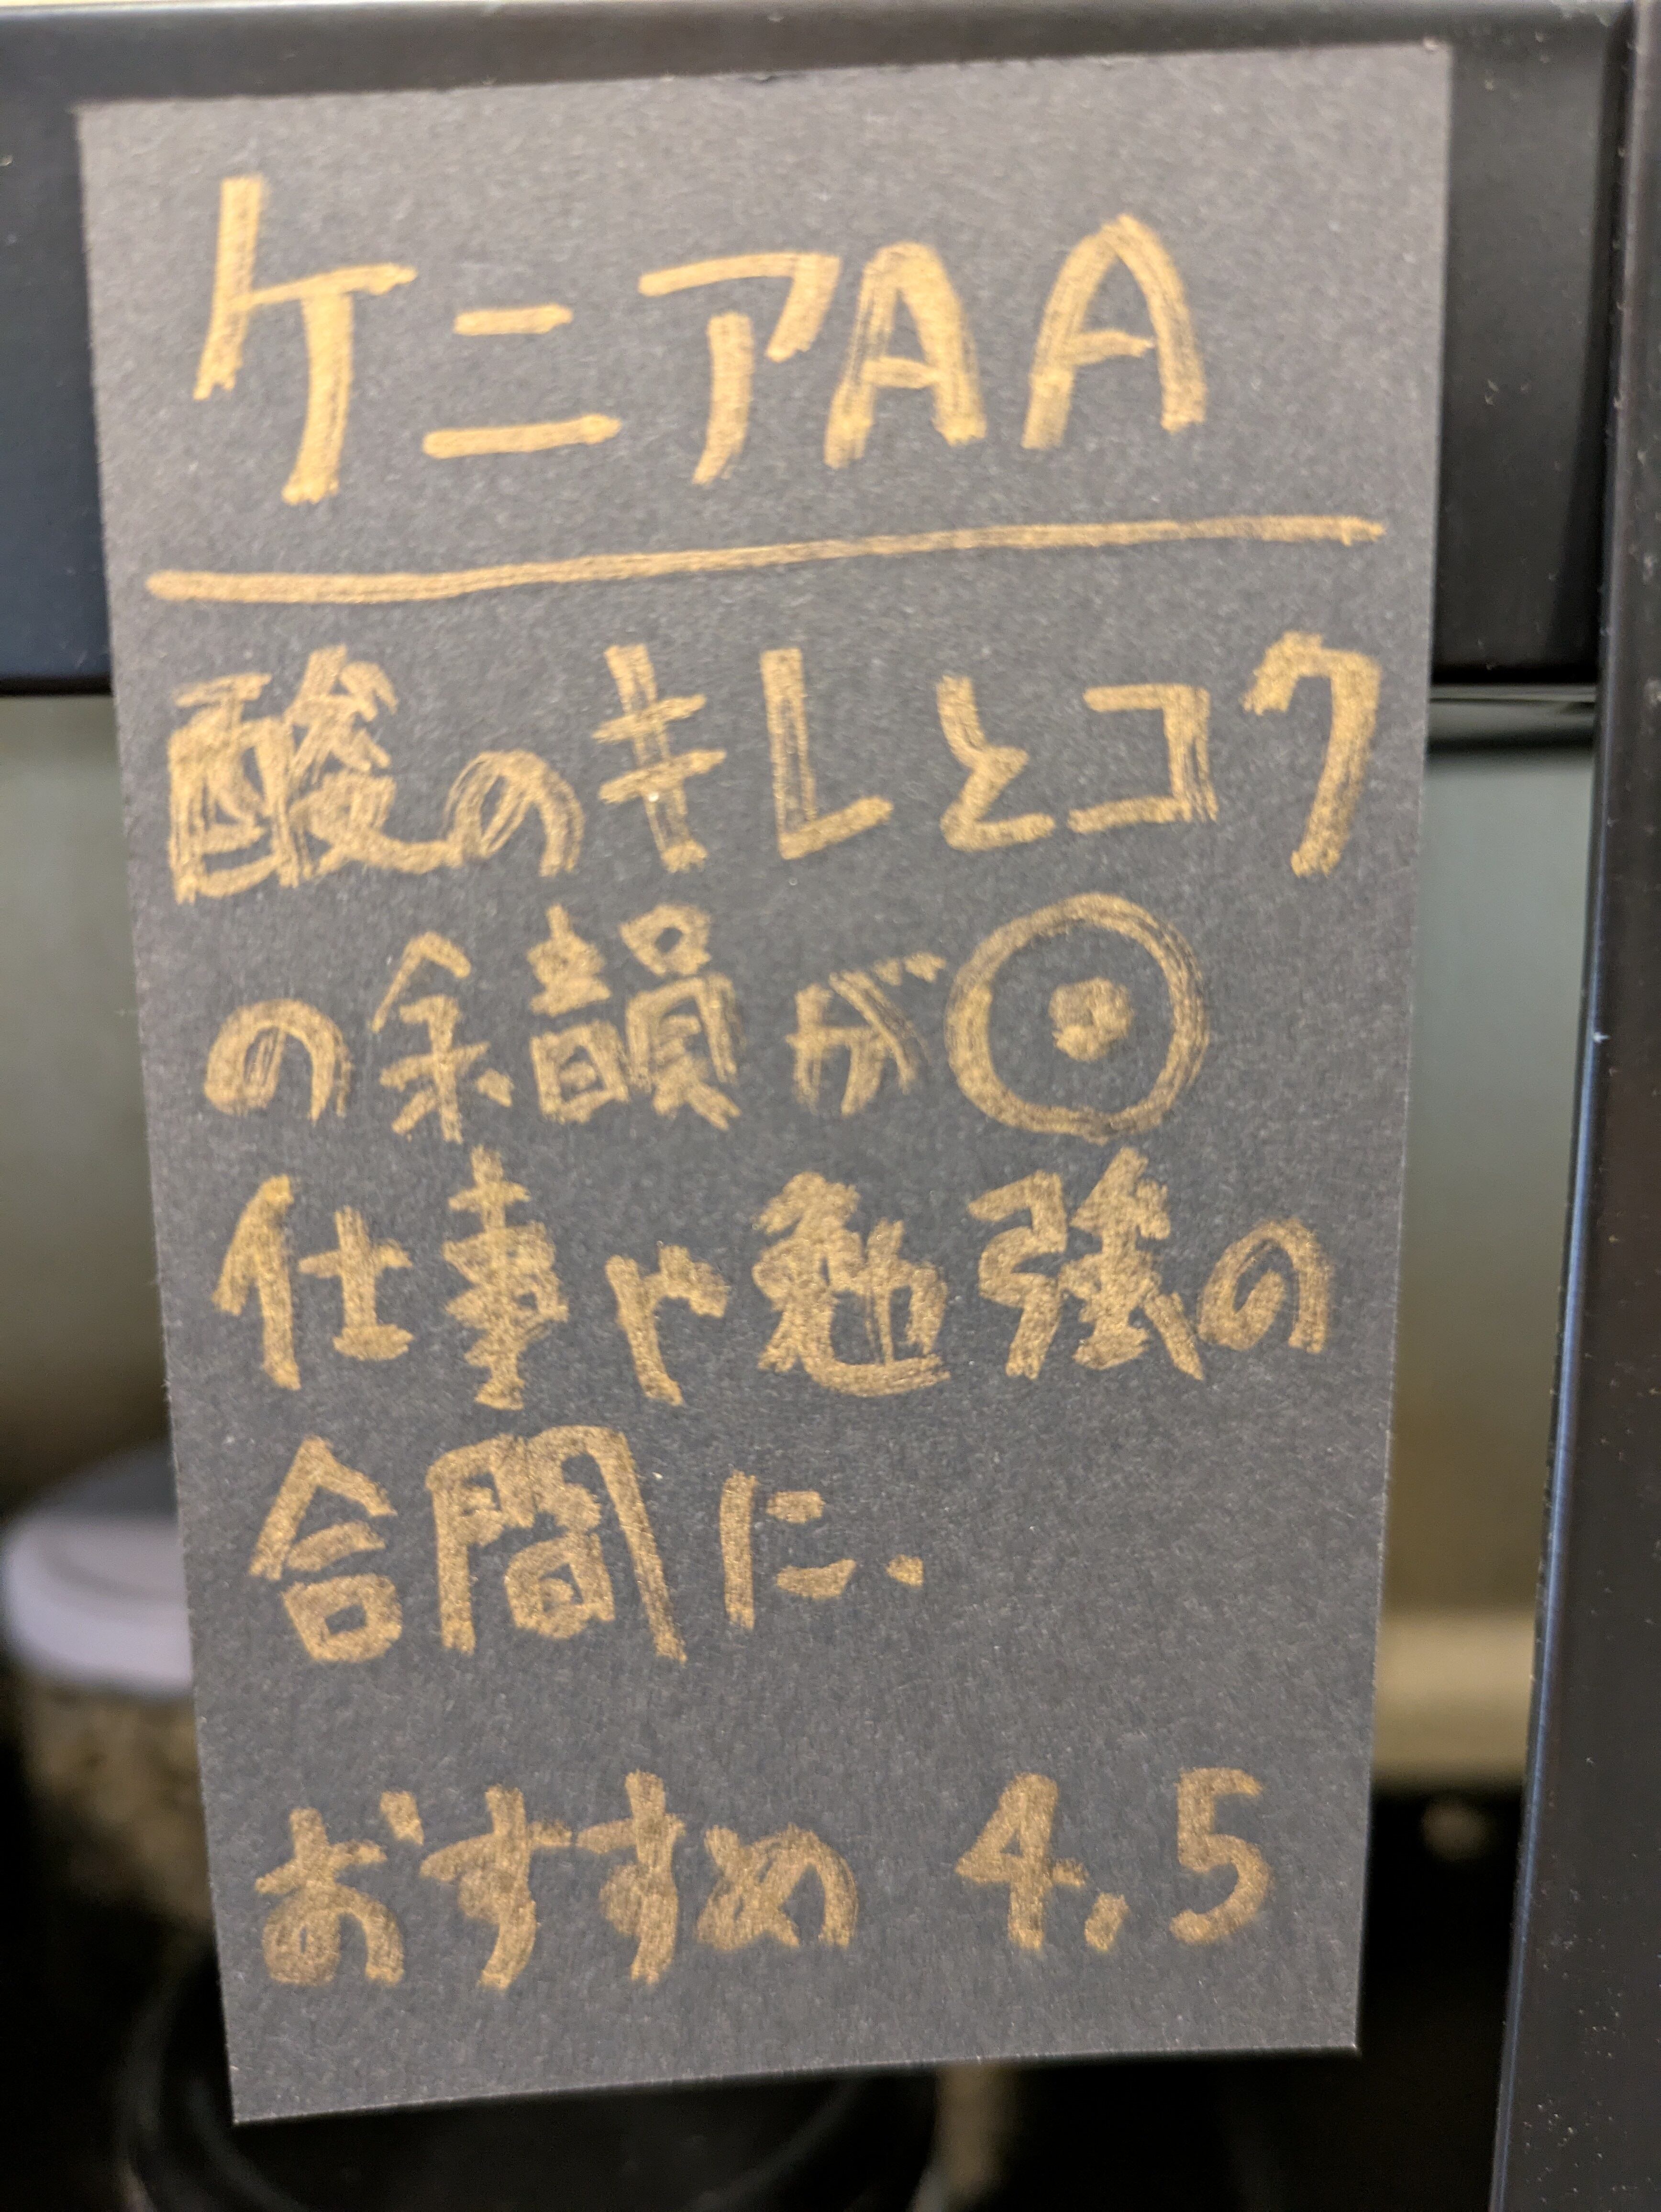 ケニアAA
酸のキレとコク
の余韻が◉
仕事や勉強の
合間に.
おすすめ 4.5